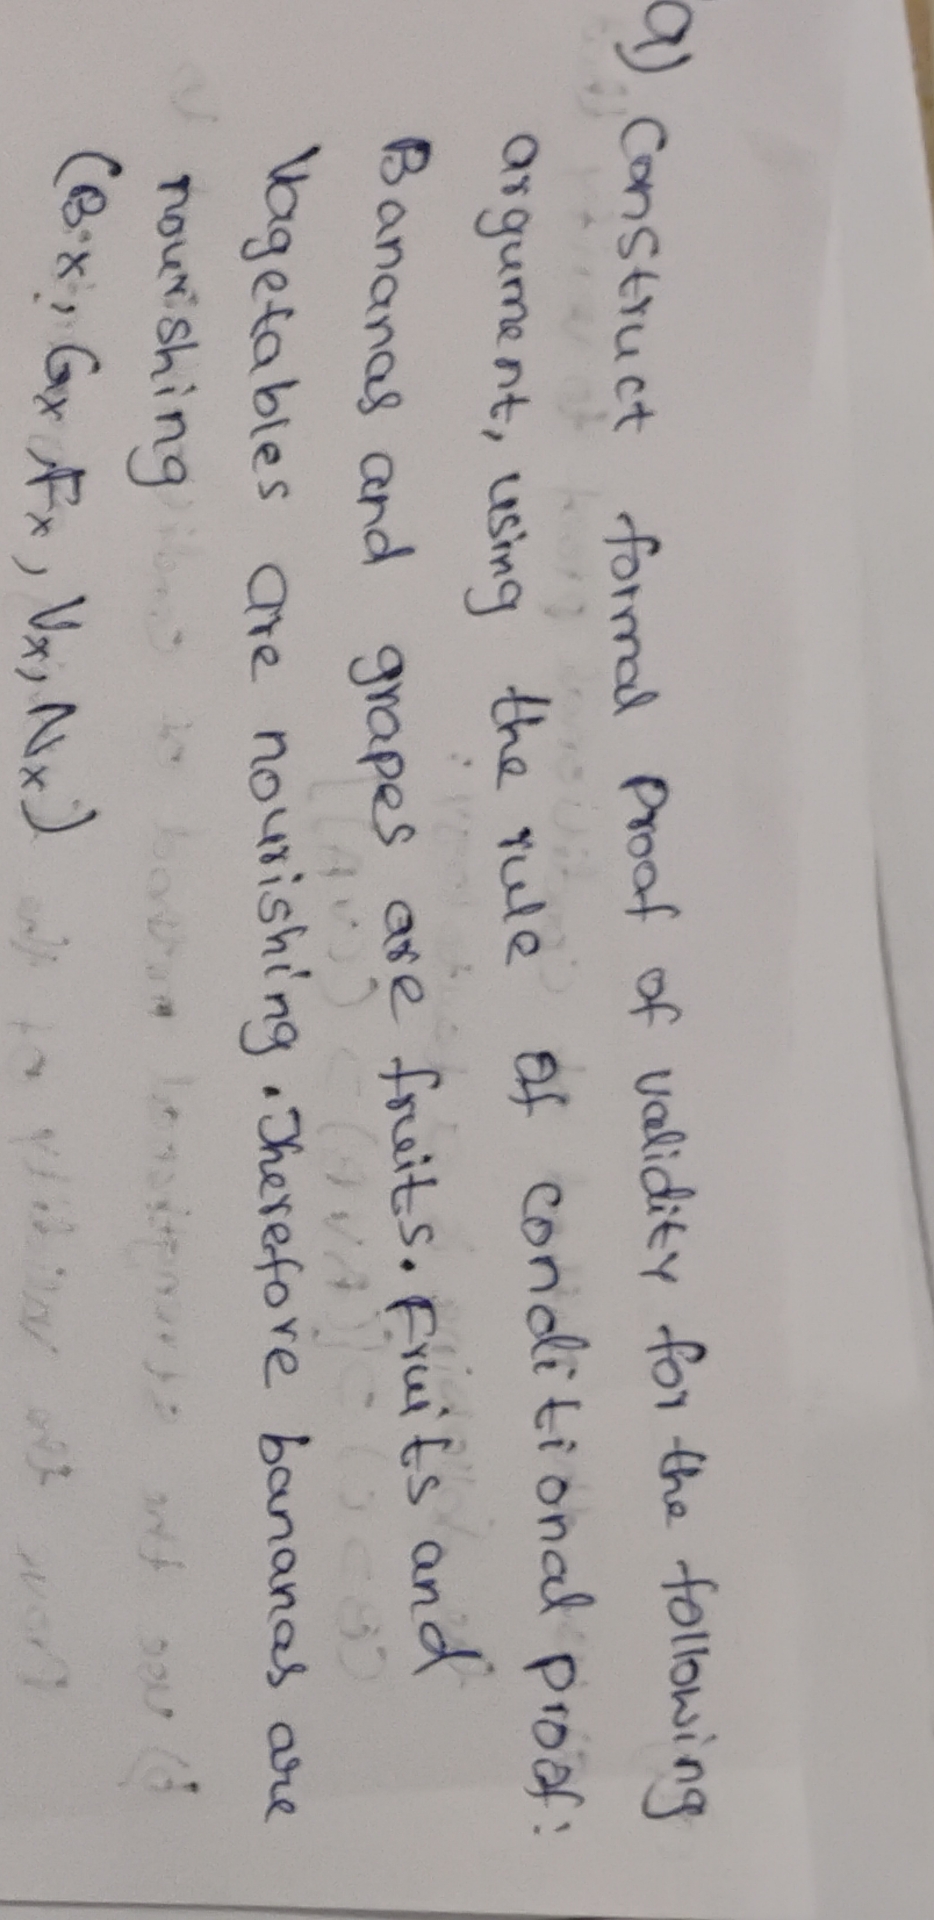 a) Construct formal proof of validity for the following
argument, using the rule of conditional proof:
Bananas and grapes are fruits. Fruits and
Vagetables are nourishing. Therefore bananas are
nourishing
(Bx, Gx, Fx, Vx, Nx)